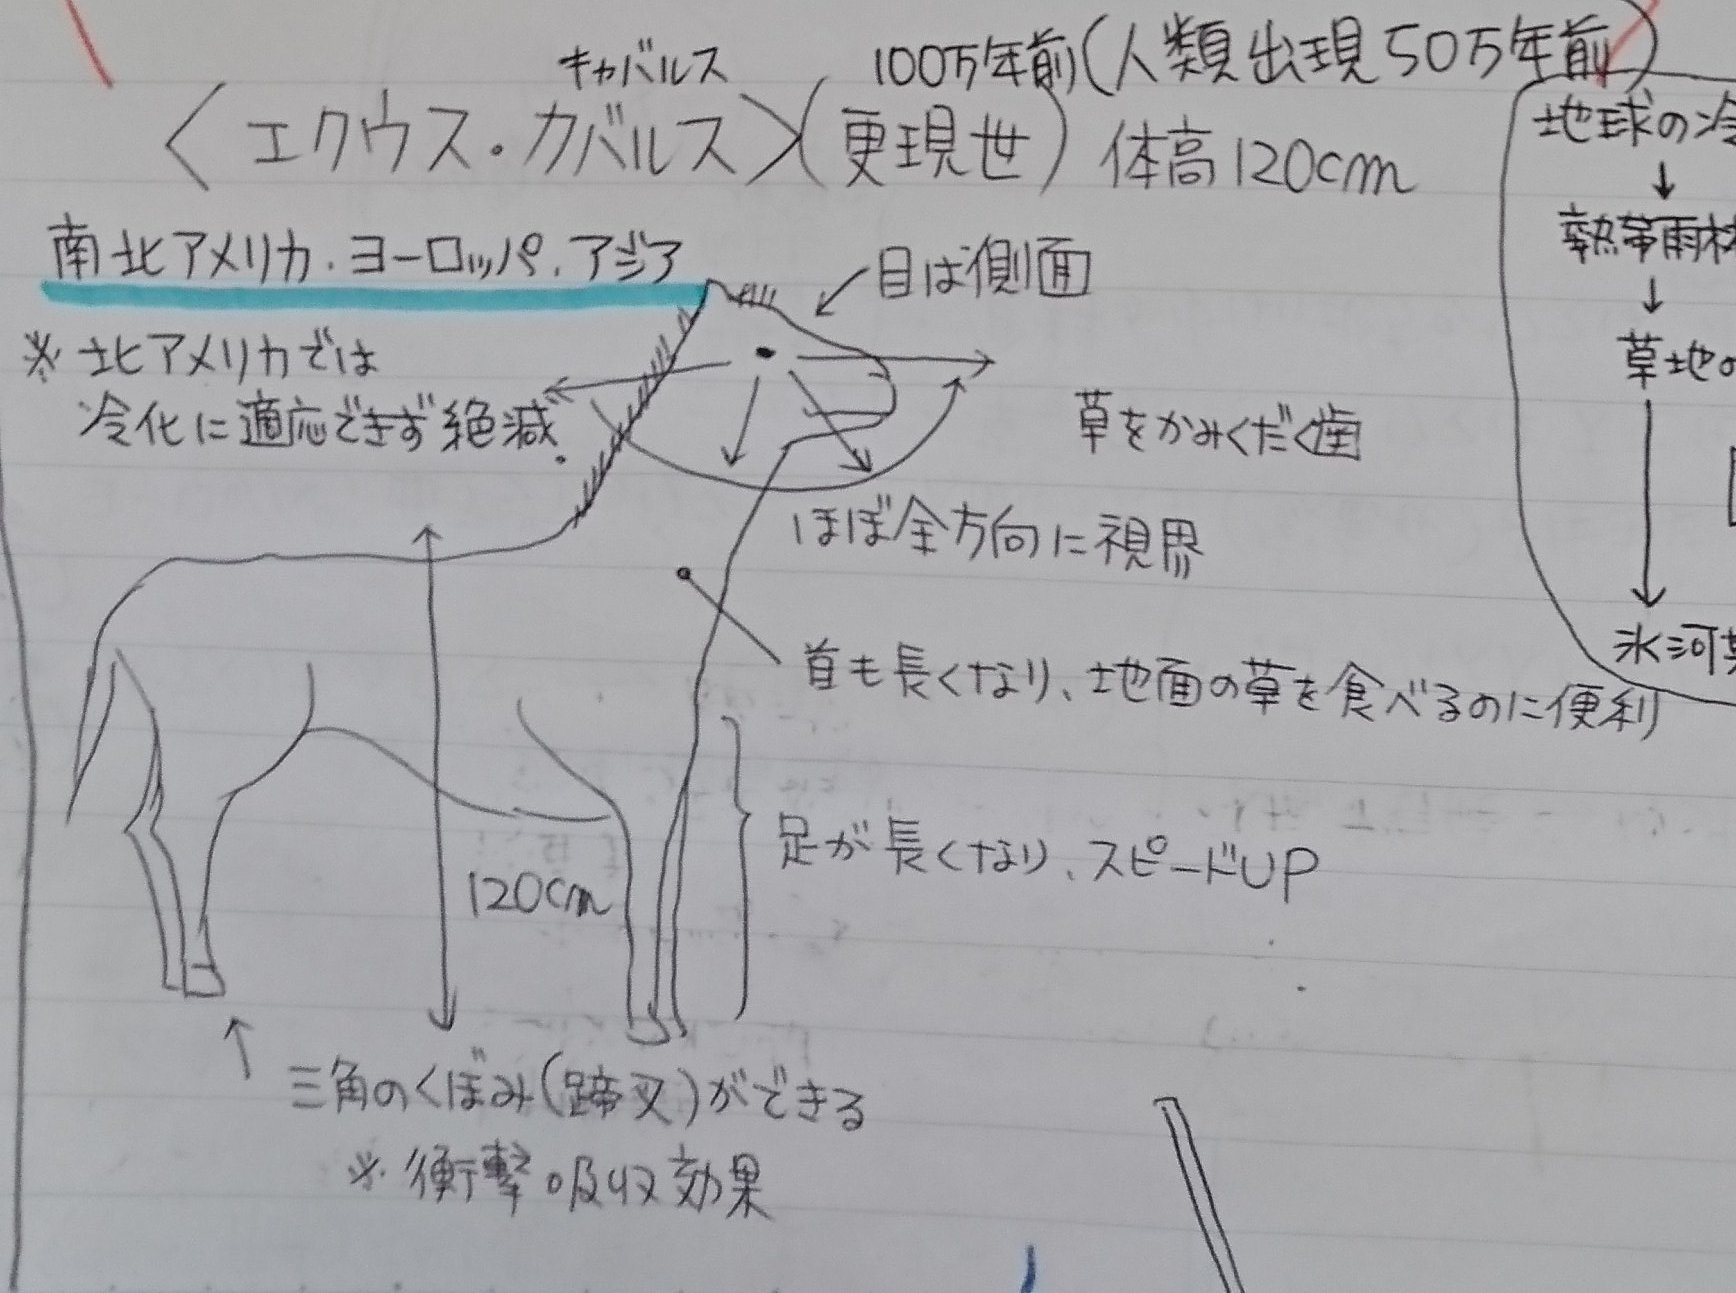 キャバルス
100万年前(人類出現50万年前)
〈エクウス・カバルス〉(更現世) 体高120cm
南北アメリカ.ヨーロッパ.アジア
※北アメリカでは
冷化に適応できず絶滅.
目は側面
草をかみくだく歯
ほぼ全方向に視界
首も長くなり、地面の草を食べるのに便利
足が長くなり、スピードUP
120cm
三角のくぼみ(蹄叉)ができる
※衝撃吸収効果
地球の冷
↓
熱帯雨林
↓
草地の
↓
氷河期